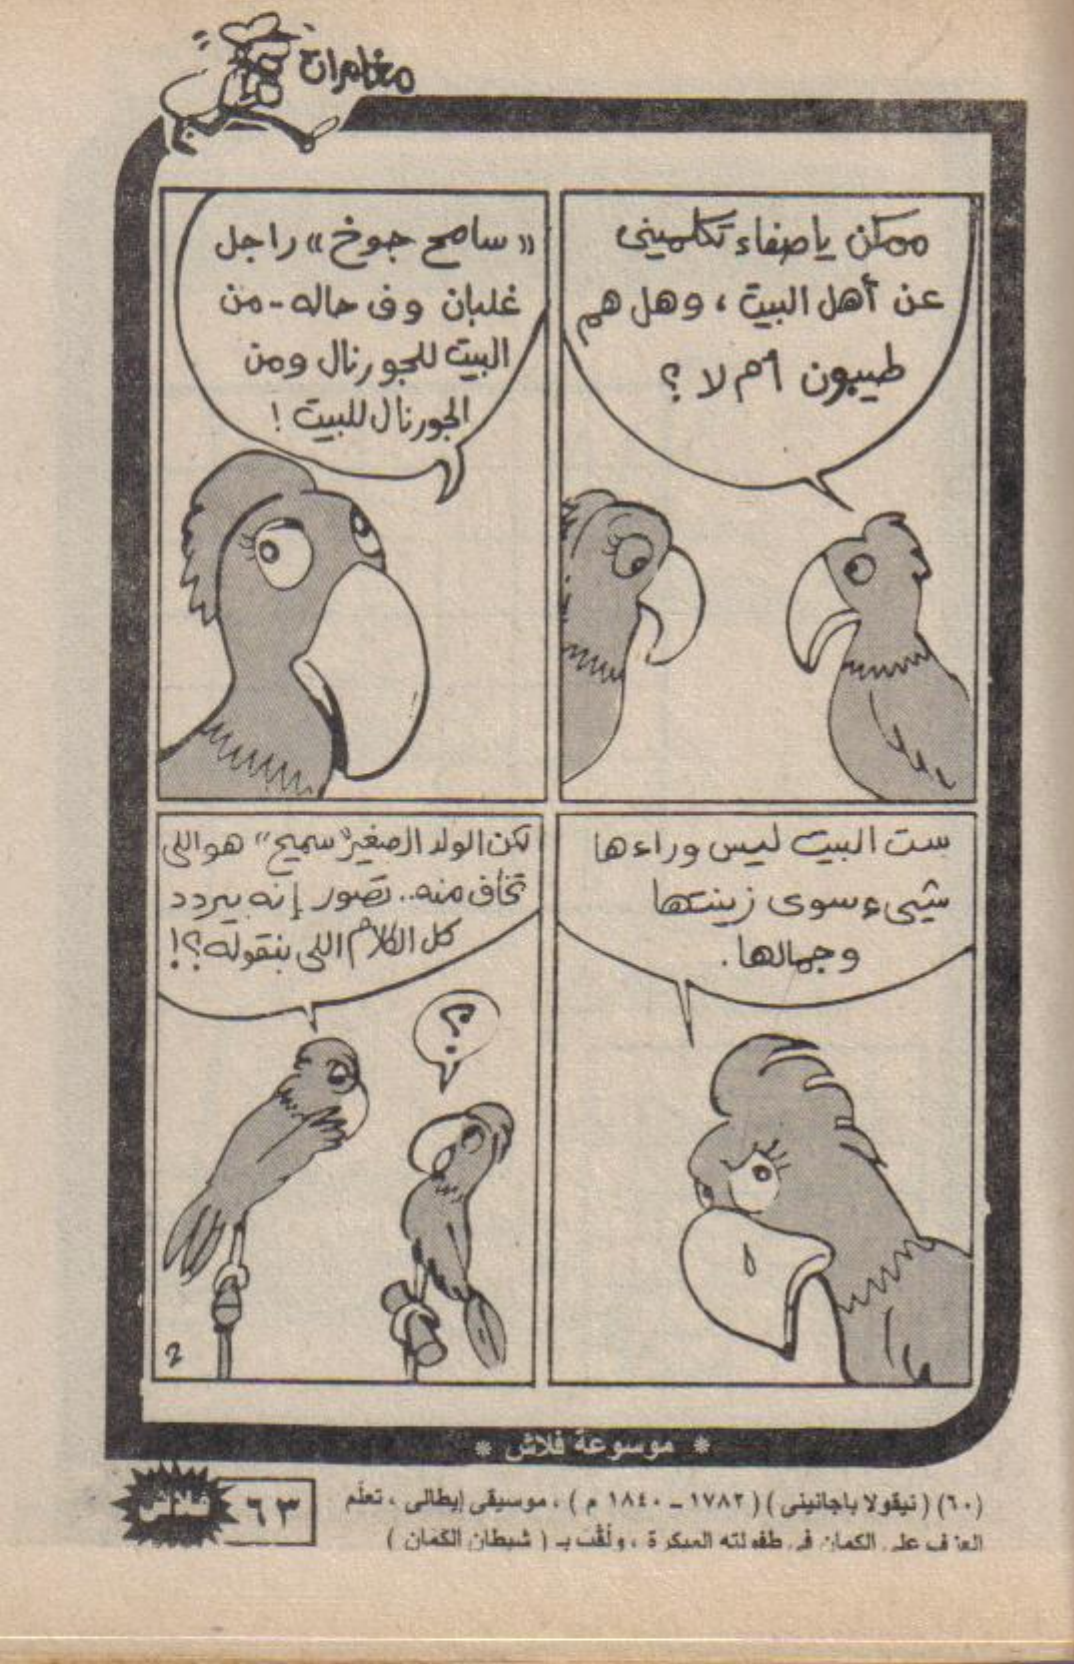 مغامرات
ممكن ياصفاء تكلميني
عن أهل البيت ، وهل هم
طيبون أم لا ؟
« سامح جوخ » راجل
غلبان وف حاله - من
البيت للجورنال ومن
الجورنال للبيت !
ست البيت ليس وراءها
شيىء سوى زينتها
وجمالها .
لكن الولد الصغير "سميح" هو اللى
تخاف منه .. تصور إنه بيردد
كل الكلام اللى بنقوله ؟!
؟
2
* موسوعة فلاش *
(٦٠) ( نيقولا باجانينى ) ( ١٧٨٢ - ١٨٤٠ م ) ، موسيقى إيطالى ، تعلَّم
العزف على الكمان فى طفولته المبكرة ، ولُقِّبَ بـ ( شيطان الكمان )
٦٣
فلاش